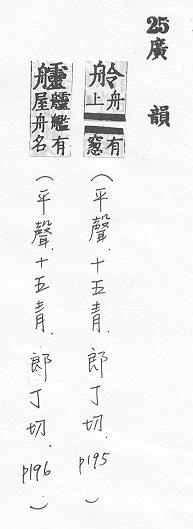 25 廣韻
舲 舟上有窻
(平聲．十五青．郎丁切．p195)
𦫊 艫艦有屋舟名
(平聲．十五青．郎丁切．p196)